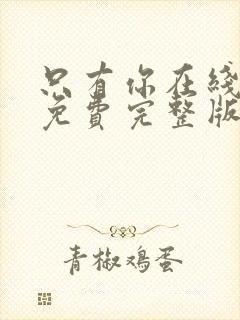 只有你在线
免费完整版
青椒鸡蛋